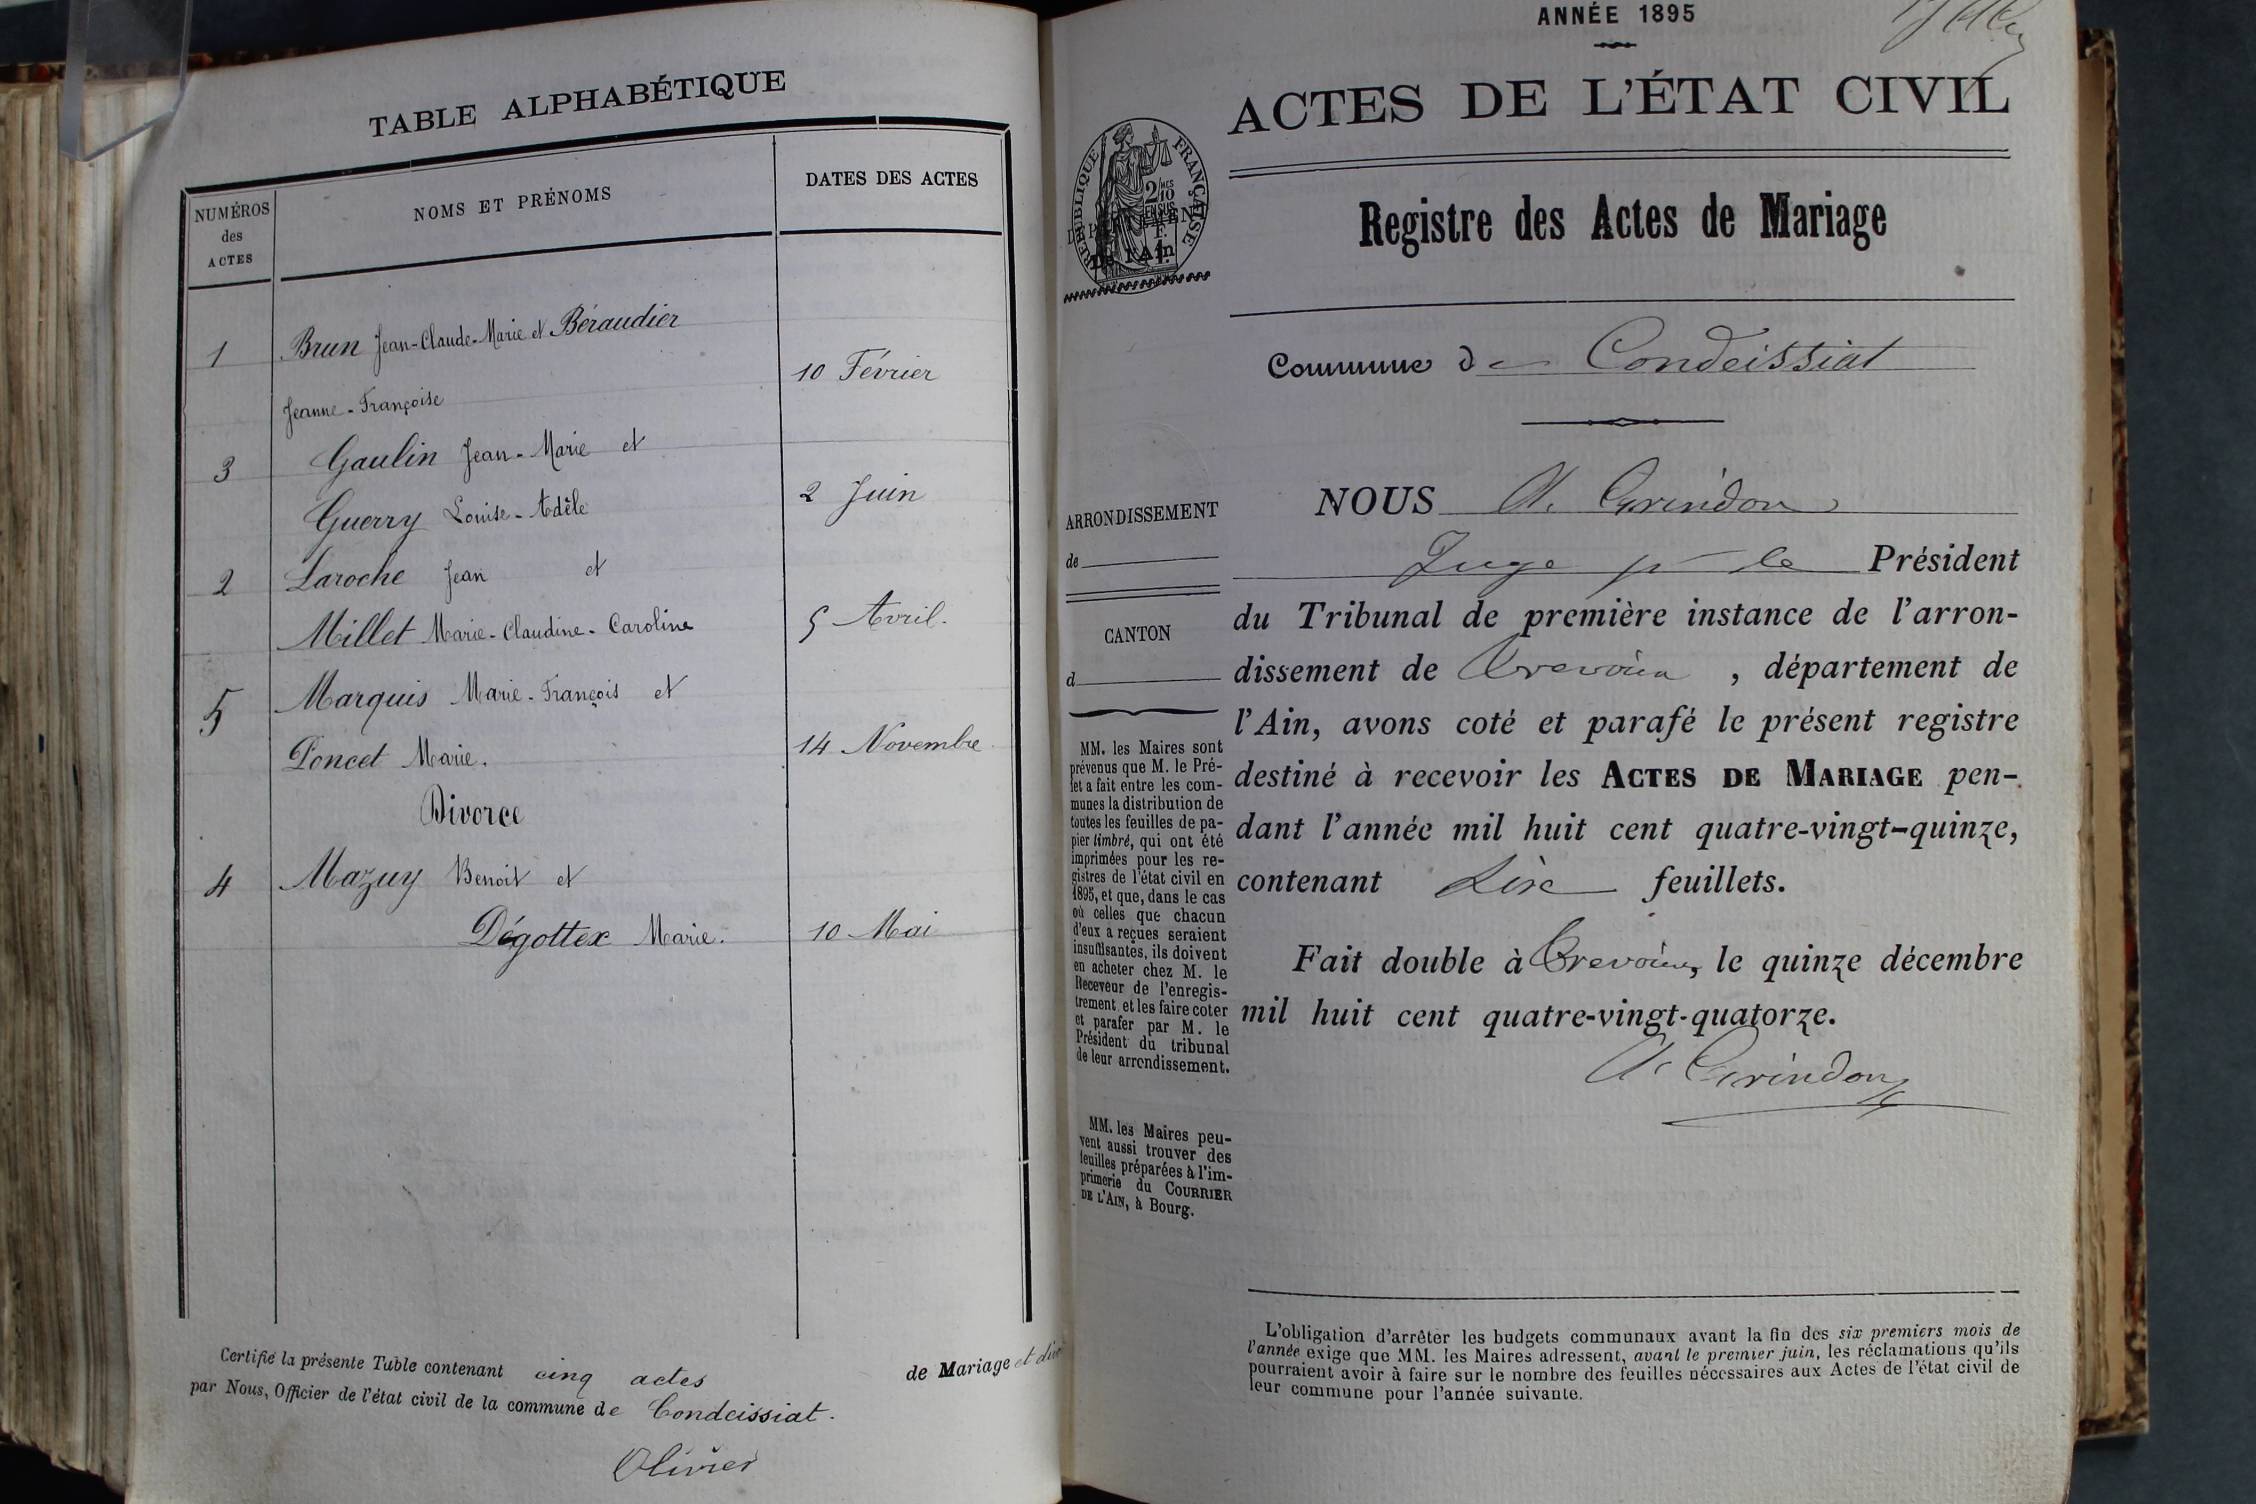 TABLE ALPHABÉTIQUE
NUMÉROS
des
ACTES
NOMS ET PRÉNOMS
DATES DES ACTES
1 Brun Jean-Claude-Marie et Béraudier
Jeanne-Françoise 10 Février
3 Gaulin Jean-Marie et
Guerry Louise-Adèle 2 Juin
2 Laroche Jean et
Millet Marie-Claudine-Caroline 5 Avril.
5 Marquis Marie-François et
Poncet Marie. 14 Novembre
Divorce
4 Mazuy Benoit et
Dégottex Marie. 10 Mai
Certifié la présente Table contenant cinq actes de Mariage et
par Nous, Officier de l'état civil de la commune de Condeissiat.
Olivier
ANNÉE 1895
ACTES DE L'ÉTAT CIVIL
RÉPUBLIQUE FRANÇAISE
DÉPARTEMENT
De l'Ain
Registre des Actes de Mariage
Commune de Condeissiat
ARRONDISSEMENT
de
CANTON
d
MM. les Maires sont
prévenus que M. le Pré-
fet a fait entre les com-
munes la distribution de
toutes les feuilles de pa-
pier timbré, qui ont été
imprimées pour les re-
gistres de l'état civil en
1895, et que, dans le cas
où celles que chacun
d'eux a reçues seraient
insuffisantes, ils doivent
en acheter chez M. le
Receveur de l'enregis-
trement et les faire coter
et parafer par M. le
Président du tribunal
de leur arrondissement.
MM. les Maires peu-
vent aussi trouver des
feuilles préparées à l'im-
primerie du COURRIER
DE L'AIN, à Bourg.
NOUS A. Grindon
Juge pr le Président
du Tribunal de première instance de l'arron-
dissement de Trevoux, département de
l'Ain, avons coté et parafé le présent registre
destiné à recevoir les ACTES DE MARIAGE pen-
dant l'année mil huit cent quatre-vingt-quinze,
contenant Six feuillets.
Fait double à Trevoux, le quinze décembre
mil huit cent quatre-vingt-quatorze.
A. Grindon
L'obligation d'arrêter les budgets communaux avant la fin des six premiers mois de
l'année exige que MM. les Maires adressent, avant le premier juin, les réclamations qu'ils
pourraient avoir à faire sur le nombre des feuilles nécessaires aux Actes de l'état civil de
leur commune pour l'année suivante.